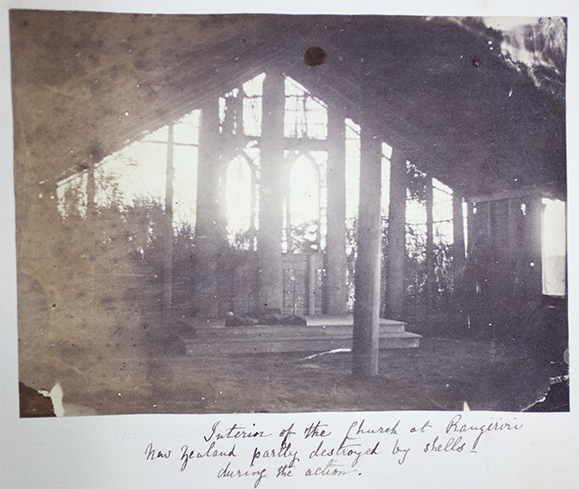 Interior of the Church at Rangiriri
New Zealand partly destroyed by shells -
during the action.